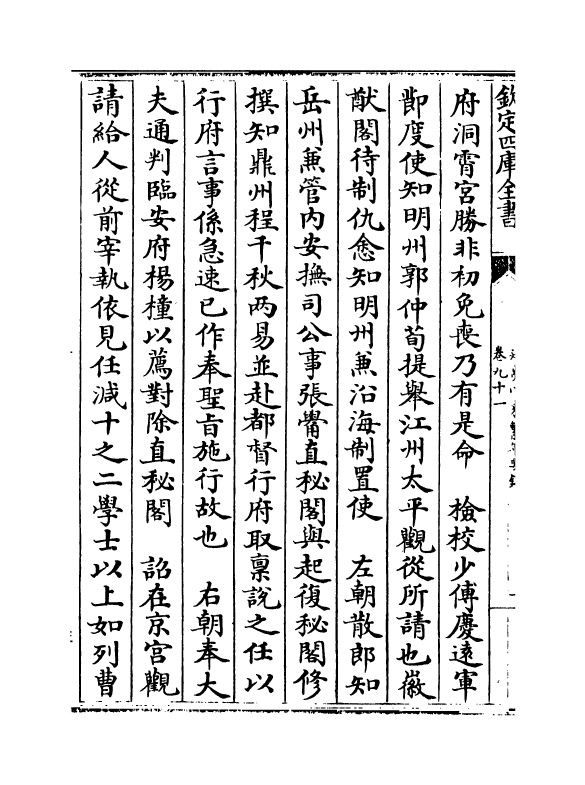 欽定四庫全書
卷九十一
府洞霄宮勝非初免喪乃有是命　檢校少傅慶遠軍
節度使知明州郭仲荀提舉江州太平觀從所請也徽
猷閣待制仇悆知明州兼沿海制置使　左朝散郎知
岳州兼管内安撫司公事張觷直秘閣與起復秘閣修
撰知鼎州程千秋两易並赴都督行府取禀説之任以
行府言事係急速已作奉聖旨施行故也　右朝奉大
夫通判臨安府楊橦以薦對除直秘閣　詔在京宫觀
請給人從前宰執依見任減十之二學士以上如列曹